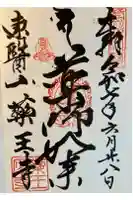 奉拝 令和七年六月廿八日
薬師如来
東醫山 薬王寺